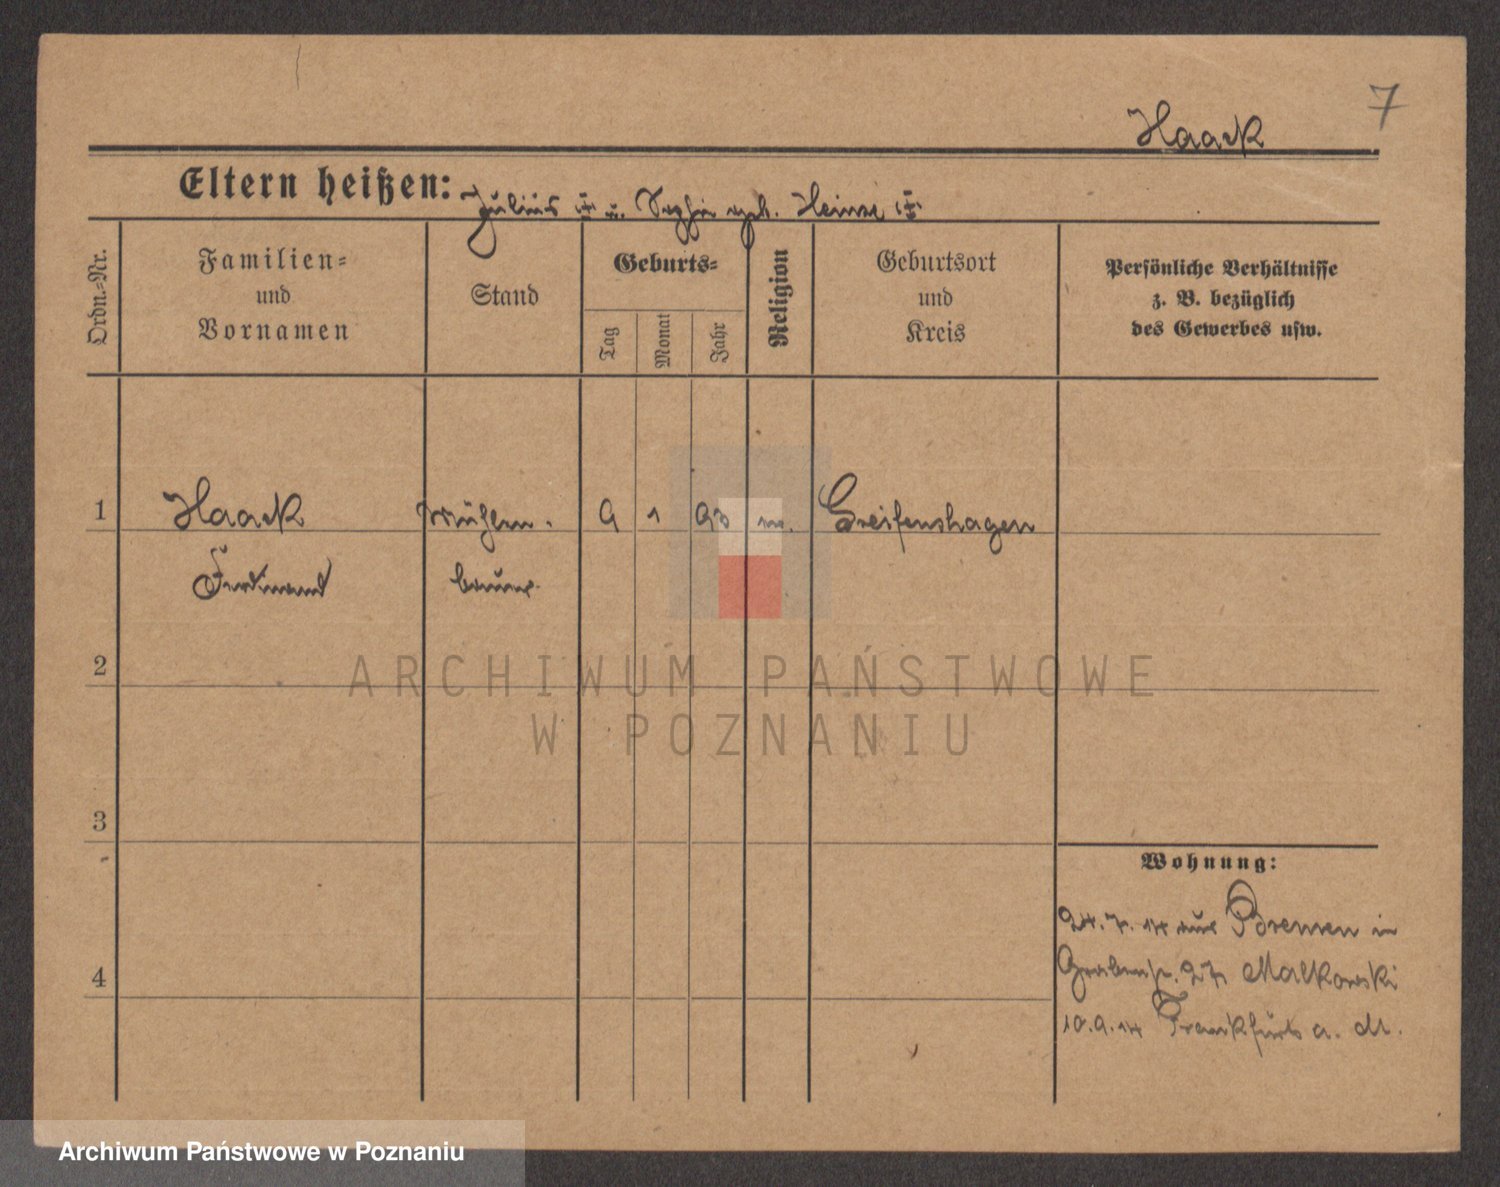 7
Haack
Eltern heißen: Julius ‡ u. Sophie geb. Heinze ‡
Ordn.=Nr.
Familien=
und
Vornamen
Stand
Geburts=
Tag
Monat
Jahr
Religion
Geburtsort
und
Kreis
Persönliche Verhältnisse
z. B. bezüglich
des Gewerbes usw.
1 Haack Mühlen. 9 1 93 Greifenhagen
Ferdinand bauer
2
3
4
Wohnung:
24.7.14 aus Bremen in
Grabenstr. 27, Malkowski
10.9.14 Frankfurt a. M.
ARCHIWUM PAŃSTWOWE
W POZNANIU
Archiwum Państwowe w Poznaniu